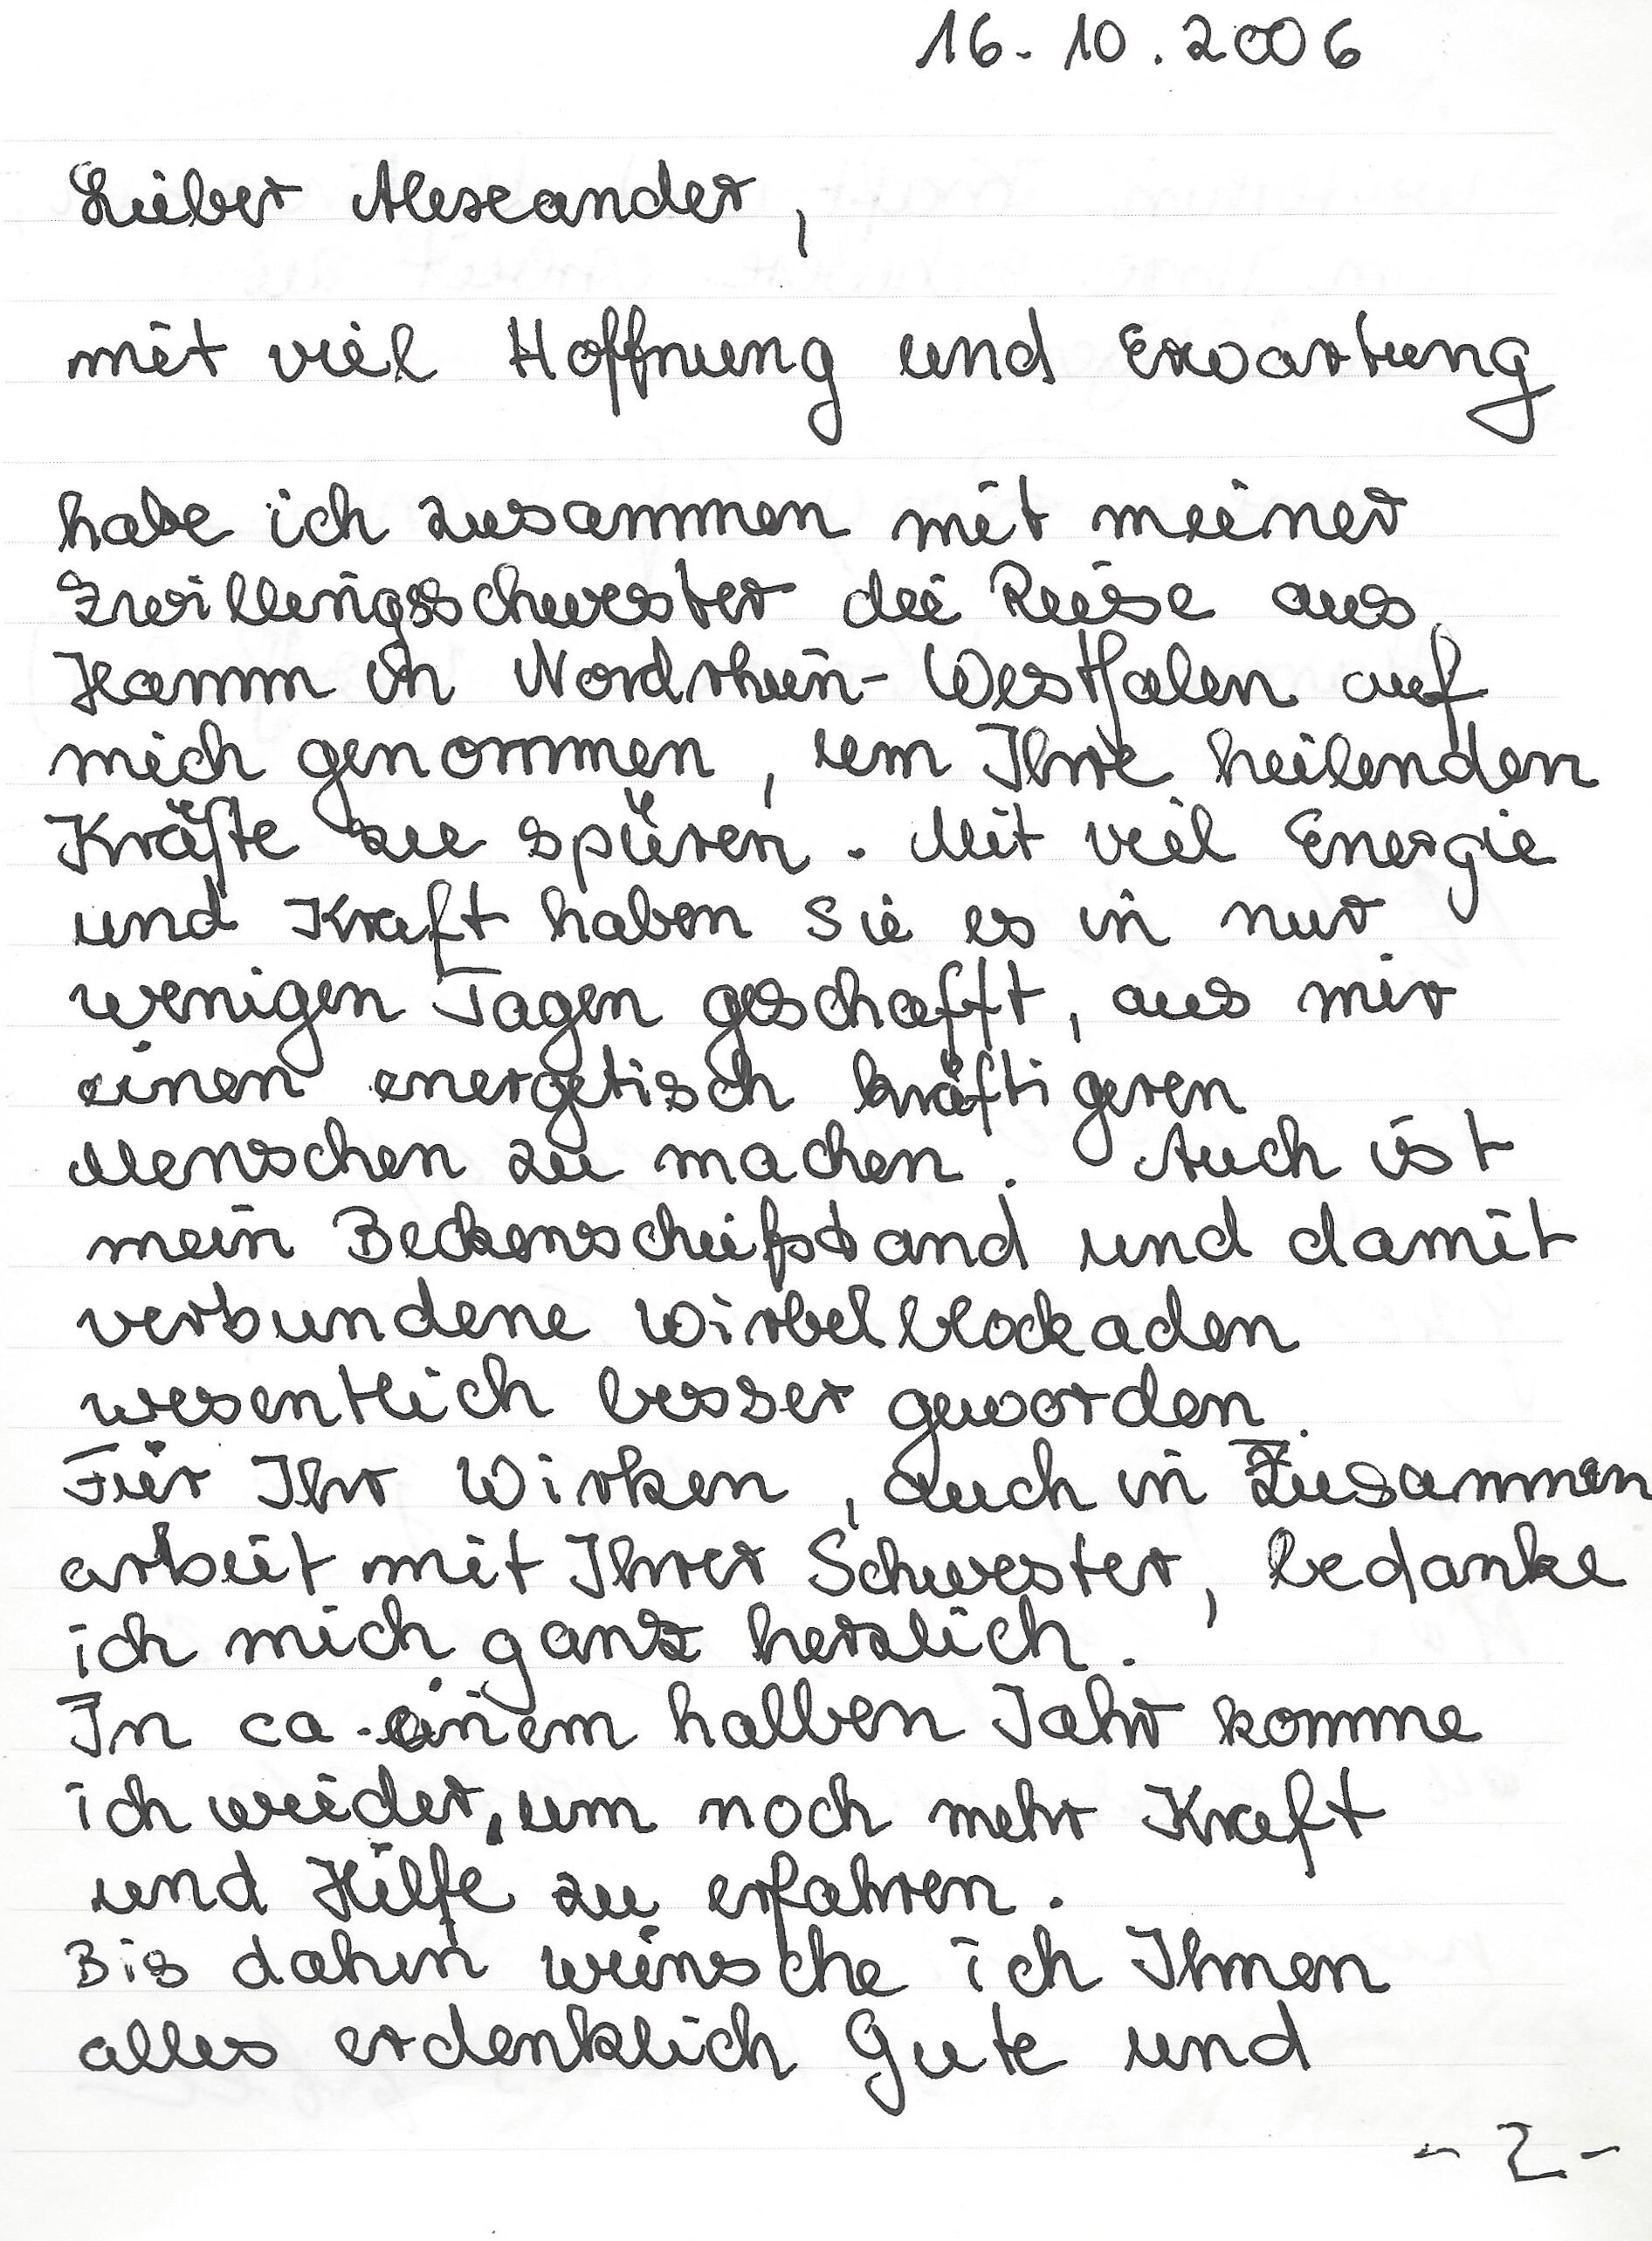 16. 10. 2006
Lieber Alexander,
mit viel Hoffnung und Erwartung
habe ich zusammen mit meiner
Zwillingsschwester die Reise aus
Hamm in Nordrhein-Westfalen auf
mich genommen, um Ihre heilenden
Kräfte zu spüren. Mit viel Energie
und Kraft haben Sie es in nur
wenigen Tagen geschafft, aus mir
einen energetisch kräftigeren
Menschen zu machen. Auch ist
mein Beckenschiefstand und damit
verbundene Wirbelblockaden
wesentlich besser geworden.
Für Ihr Wirken, auch in Zusammen
arbeit mit Ihrer Schwester, bedanke
ich mich ganz herzlich.
In ca. einem halben Jahr komme
ich wieder, um noch mehr Kraft
und Hilfe zu erfahren.
Bis dahin wünsche ich Ihnen
alles erdenklich Gute und
- 2 -